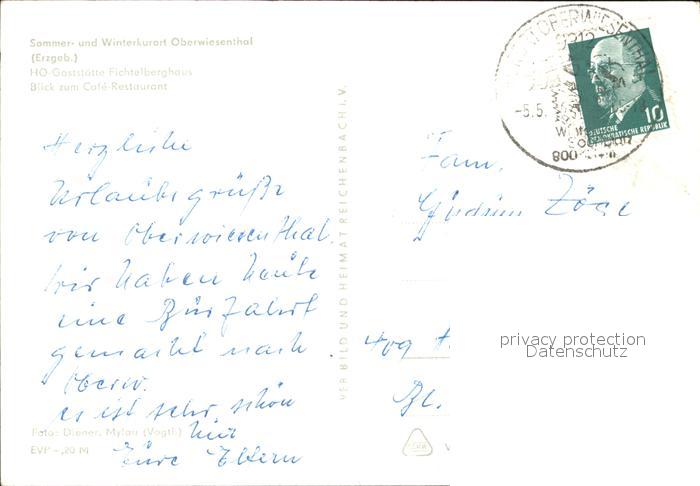 Sommer- und Winterkurort Oberwiesenthal
(Erzgeb.)
HO-Gaststätte Fichtelberghaus
Blick zum Café-Restaurant
Herzliche
Urlaubsgrüße
von Oberwiesenthal.
Wir haben heute
eine Busfahrt
gemacht nach
Oberw.
es ist sehr schön
hier
Eure Eltern
Foto: Diener, Mylau (Vogtl.)
EVP -,20 M
VEB BILD UND HEIMAT REICHENBACH I. V.
OBERWIESENTHAL
-5.5.
800
10
DEUTSCHE
DEMOKRATISCHE REPUBLIK
Fam.
privacy protection
Datenschutz